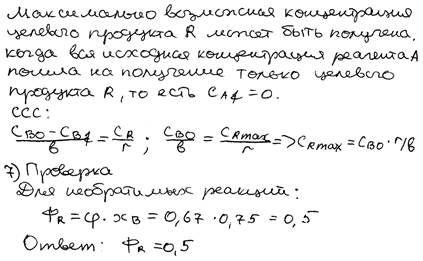 Максимально возможная концентрация
целевого продукта R может быть получена,
когда вся исходная концентрация реагента А
пошла на получение только целевого
продукта R, то есть C_Af = 0.
ССС:
(C_B0 − C_Bf)/в = C_R/r ; C_B0/в = C_Rmax/r => C_Rmax = C_B0 · r/в
7) Проверка
Для необратимых реакций:
Φ_R = φ · x_B = 0,67 · 0,75 = 0,5
Ответ: Φ_R = 0,5